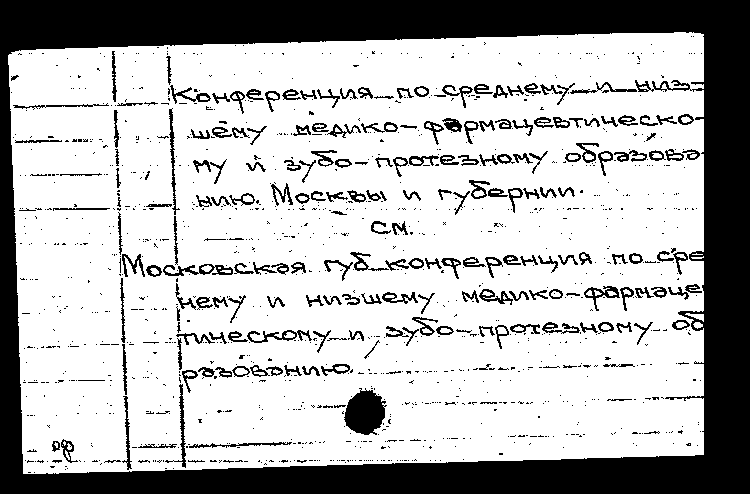 Конференция по среднему и низ-
шему медико-фармацевтическо-
му и зубо-протезному образова-
нию. Москвы и губернии.
см.
Московская губ. конференция по сре
нему и низшему медико-фармаце
тическому и зубо-протезному об
разованию